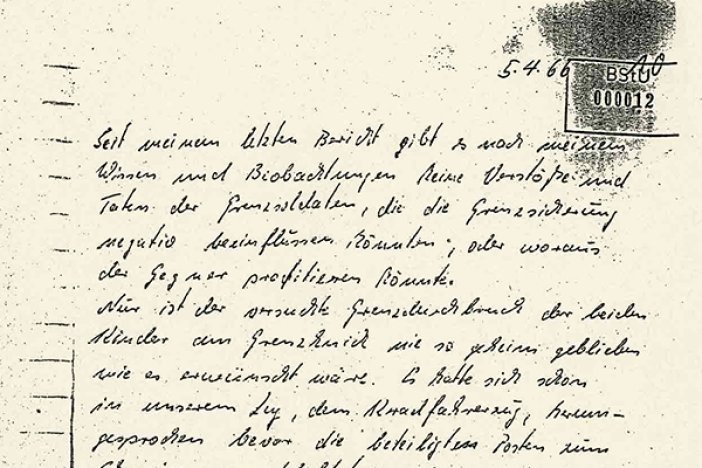 5.4.66
BStU
000012
Seit meinem letzten Bericht gibt es nach meinem
Wissen und Biobachtungen keine Verstöße und
Taten der Grenzsoldaten, die die Grenzsicherung
negativ beeinflussen könnten, oder woraus
der Gegner profitieren könnte.
Nur ist der versuchte Grenzdurchbruch der beiden
Kinder am Grenzknick nie so geheim geblieben
wie es erwünscht wäre. Es hatte sich schon
in unserem Zug, dem Kradfahrerzug, herum-
gesprochen bevor die beteiligten Posten zum